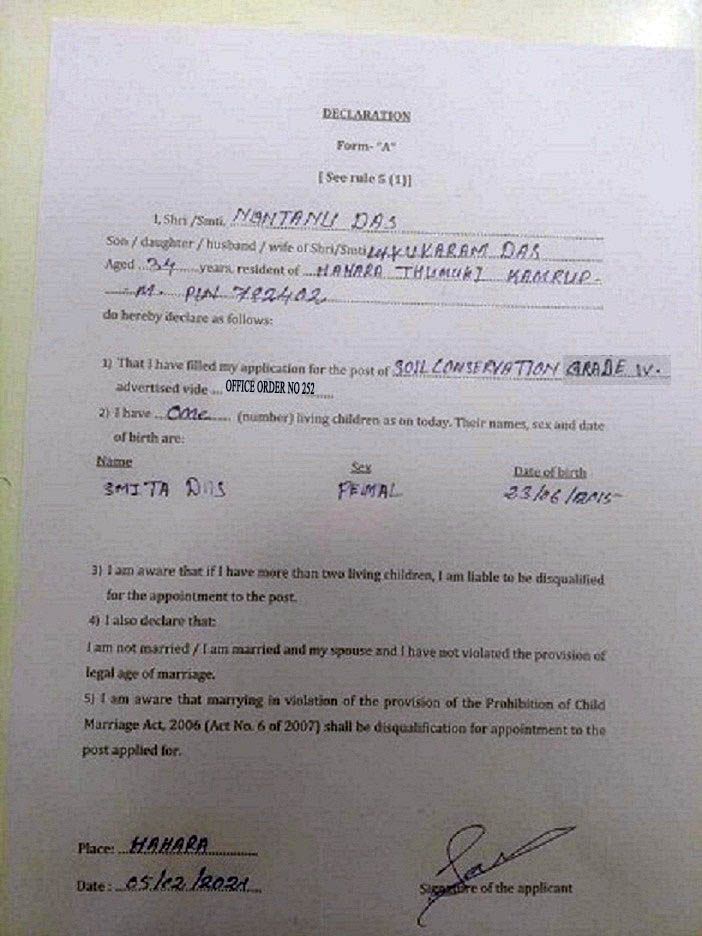 DECLARATION
Form- "A"
[ See rule 5 (1)]
I, Shri /Smti. NONTANU DAS
Son / daughter / husband / wife of Shri/Smti KUKARAM DAS
Aged ...34...... years, resident of ...HAHARA THUMUKI KAMRUP-
-M. PIN 782402
do hereby declare as follows:
1) That I have filled my application for the post of SOIL CONSERVATION GRADE IV.
advertised vide ... OFFICE ORDER NO 252 ......
2) I have ...One...... (number) living children as on today. Their names, sex and date
of birth are:
Name Sex Date of birth
SMITA DAS FEMAL 23/06/2015
3) I am aware that if I have more than two living children, I am liable to be disqualified
for the appointment to the post.
4) I also declare that:
I am not married / I am married and my spouse and I have not violated the provision of
legal age of marriage.
5) I am aware that marrying in violation of the provision of the Prohibition of Child
Marriage Act, 2006 (Act No. 6 of 2007) shall be disqualification for appointment to the
post applied for.
Place: ...HAHARA............
Date : ...05/02/2021...
Signature of the applicant